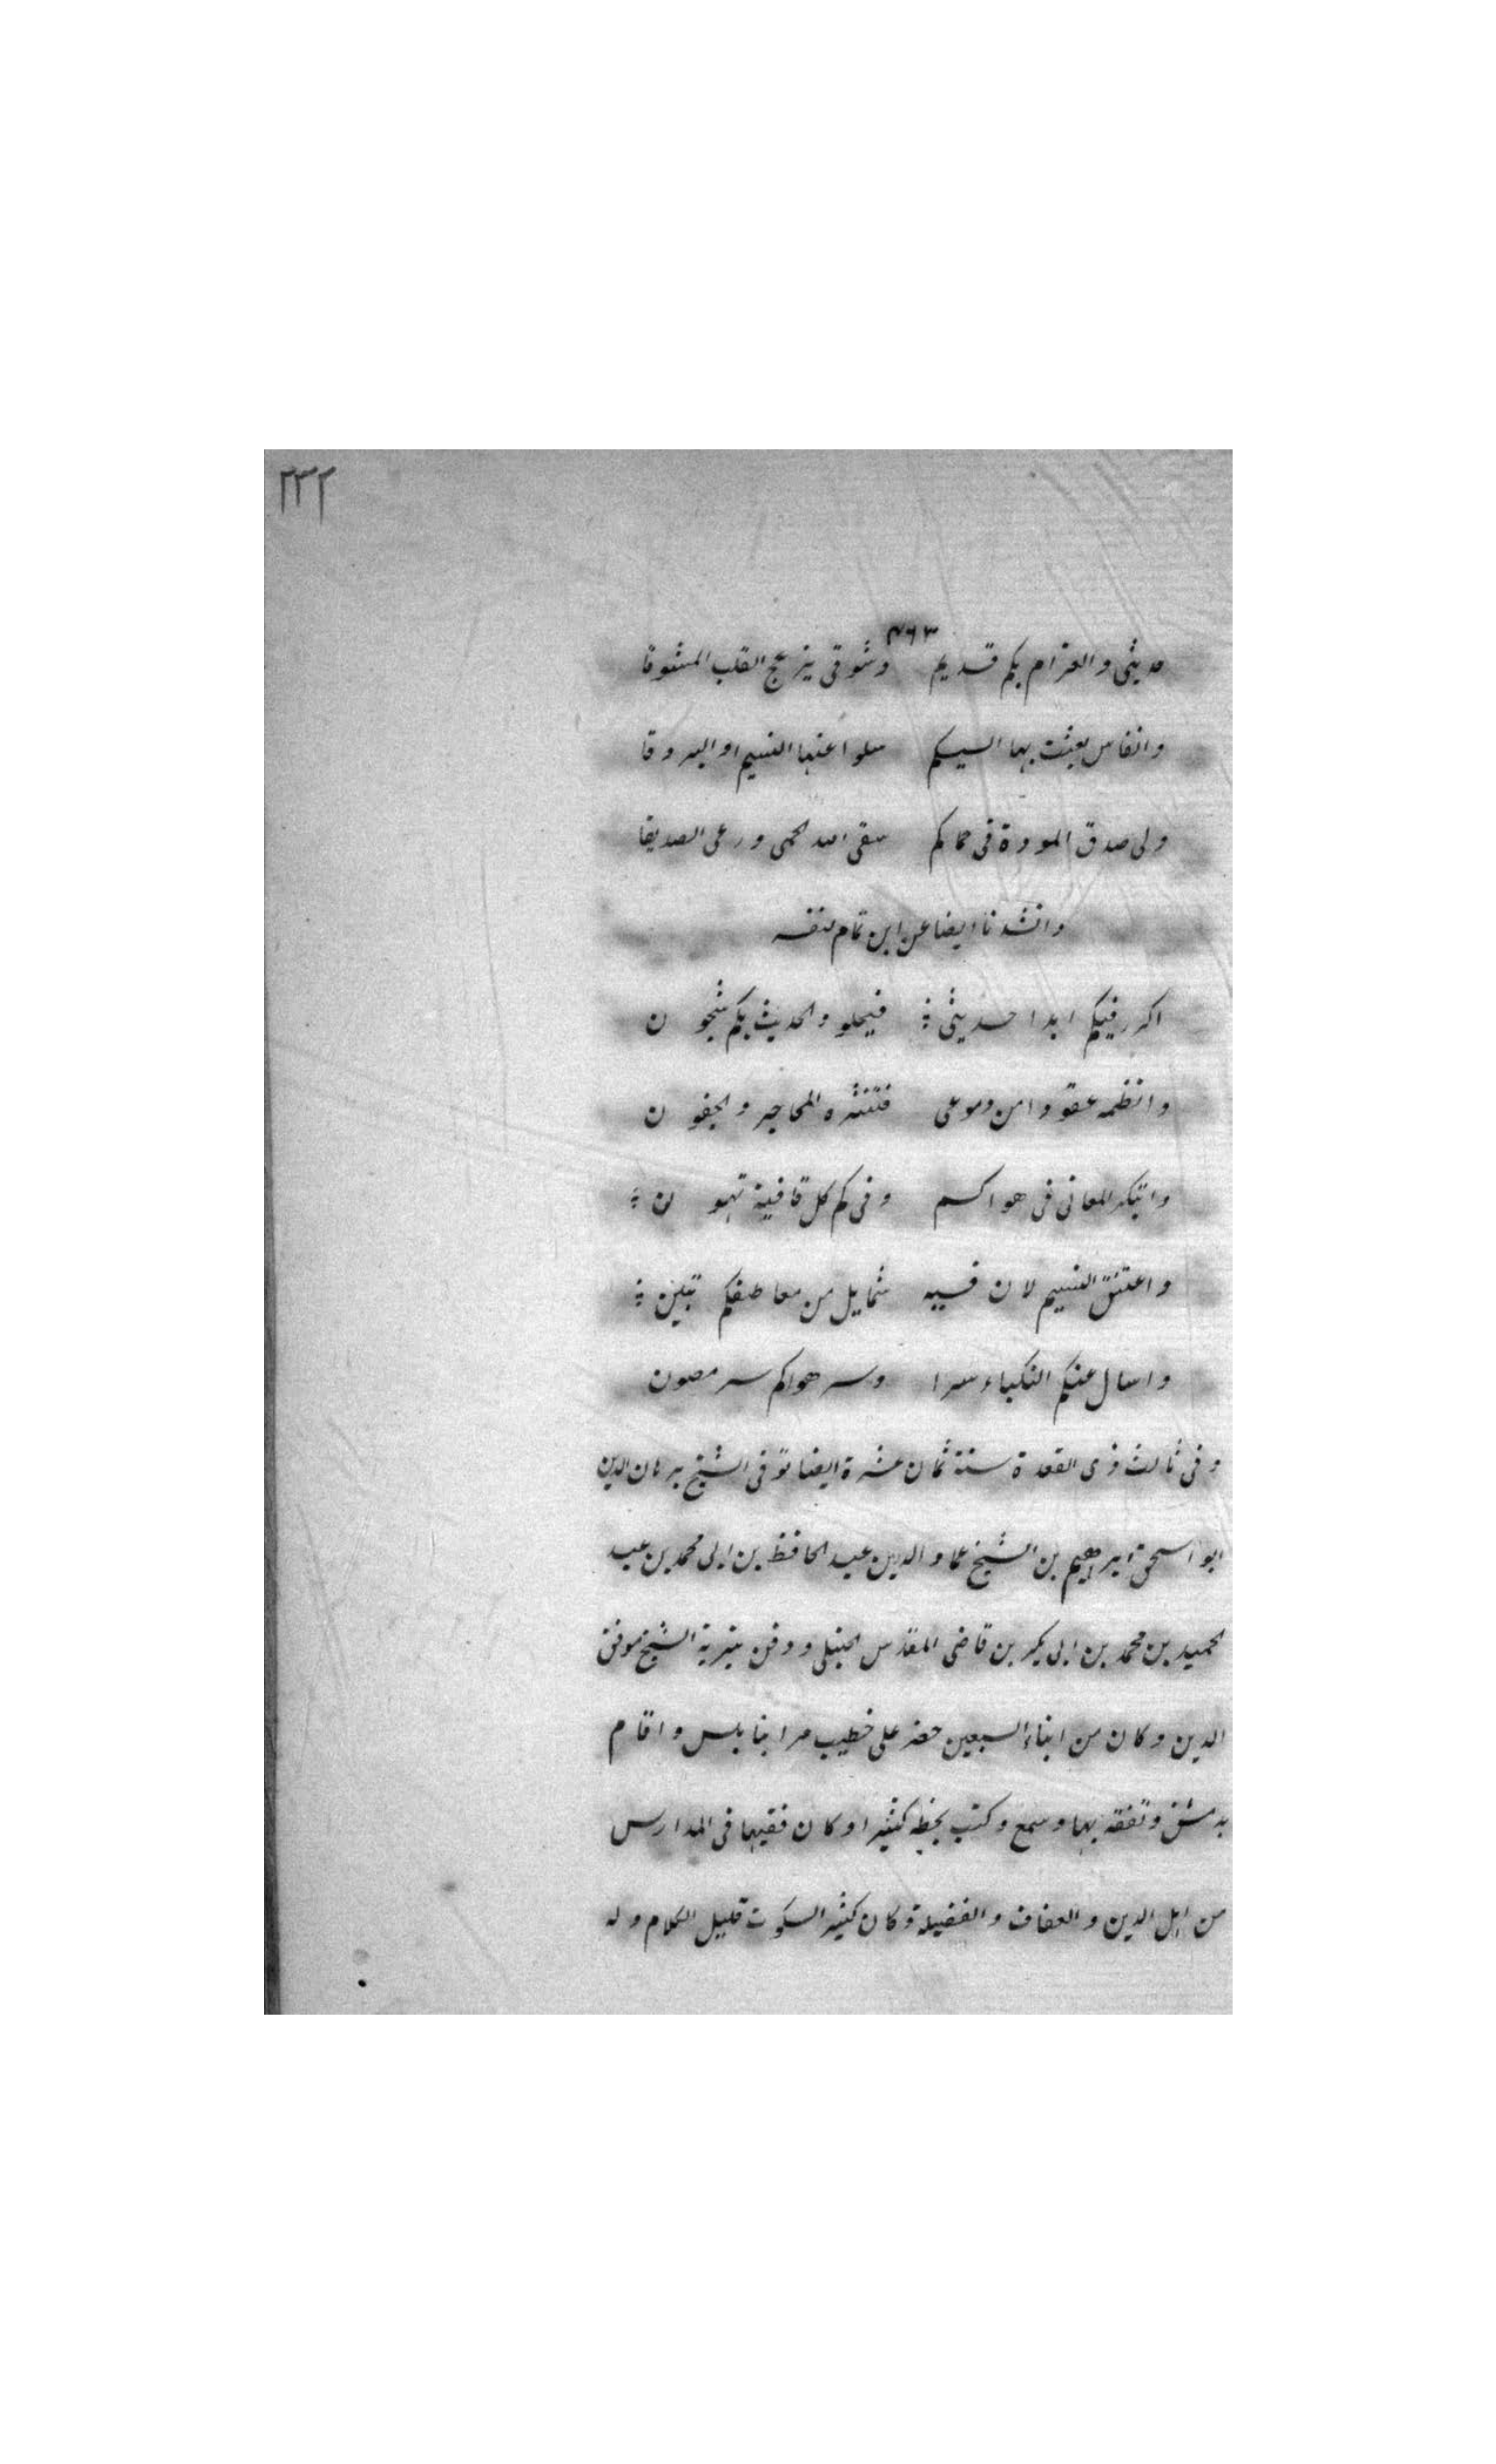 ٢٣٢
٤٦٣
حديثى والغرام بكم قديم وشوقى يزعج القلب المشوقا
وانفاس بعثت بها اليكم سلوا عنها النسيم او البروقا
ولى صدق المودة فى حماكم سقى الله الحمى ورعى الصديقا
وانشدنا ايضا عن ابن تمام لنفسه
اكرر فيكم ابدا حديثى فيحلو والحديث بكم شجون
وانظمه عقودا من دموعى فتنثره المحاجر والجفون
وابتكر المعانى فى هواكم وفى كم كل قافية تهون
واعتنق النسيم لان فيه شمايل من معاطفكم تبين
واسال عنكم النكباء سرا وسر هواكم سر مصون
وفى ثالث ذى القعدة سنة ثمان عشرة ايضا توفى الشيخ برهان الدين
ابو اسحق ابراهيم بن الشيخ عماد الدين عبد الحافظ بن ابى محمد بن عبد
الحميد بن محمد بن ابى بكر بن قاضى المقدس الحنبلى ودفن بتربة الشيخ موفق
الدين وكان من ابناء السبعين حضر على خطيب مردا بنابلس واقام
بدمشق وتفقه بها وسمع وكتب بخطه كثيرا وكان فقيها فى المدارس
من اهل الدين والعفاف والفضيلة وكان كثير السكوت قليل الكلام وله